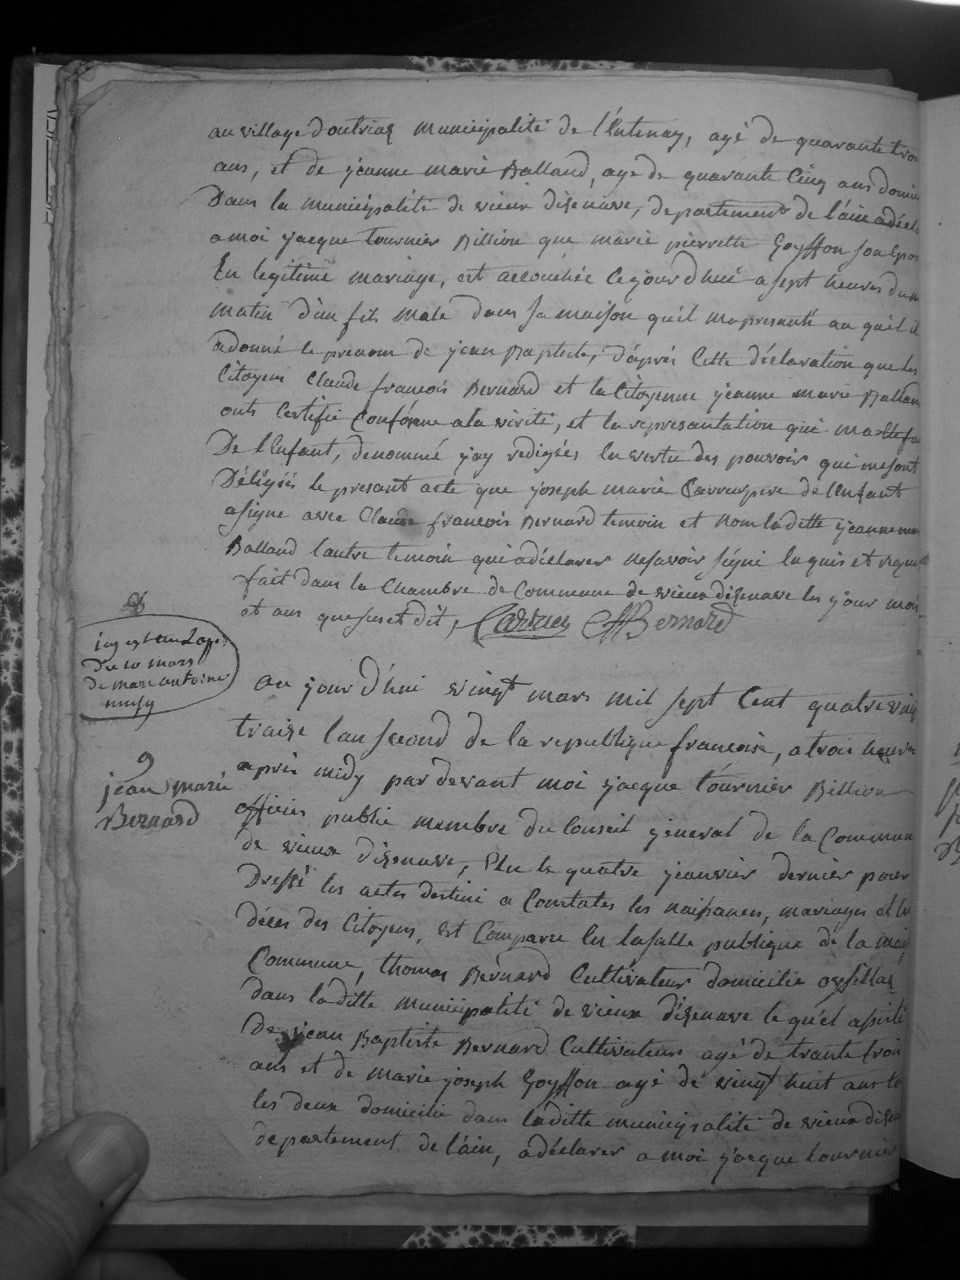 au village d'outriaz municipalité de l'entenay, agé de quarante trois
ans, et de jeanne marie Balland, age de quarante Cinq ans domici
Dans la municipalité de vieux dizenave, departement de l'ain adécla
a moi jacque tournier Billion que marie pierrette Goyffon son Epou
En legitime mariage, est accouchée Cejourd'hui a sept heures du m
matin d'un fils male dans sa maison qu'il mapresanté au quel il
adonné le prenom de jean Baptiste, d'après Cette déclaration que les
Citoyens Claude francois Bernard et la Citoyenne jeanne marie Ballan
onts Certifié Conforme a la vérité, et la representation qui ma été fai
De l'Enfant, denommé j'ay redigés En vertu des pouvoir qui mesont
Délégués le presant acte que joseph marie Carrier pere de l'Enfant
asigne avec Claude francois Bernard temoin et non laditte jeanne ma
Balland l'autre temoin qui adéclarer nesavoir signé Enquis et requi
fait dans la Chambre de Commune de vieux dizenave les jour mois
et ans que sus et dit, Carrier CfBernard
Du 10 mars
de marc antoine
au jour d'hui vingt mars mil sept Cent quatre ving
traize l'an second de la republique francoise, a trois heures
après midy par devant moi jacque tournier Billion
9
jean marie
Bernard
officier public membre du Conseil general de la Commune
de vieux dizenave, Elu le quatre jeanvier dernier pour
Dressé les actes destiné a Constater les naissances, mariages et les
déces des Citoyens, est Comparu En la salle publique de la mai
Commune, thomas Bernard Cultivateur domicilié ossillaz
dans laditte municipalité de vieux dizenave le quel assisté
De jean Baptiste Bernard Cultivateur agé de trante trois
ans et de marie joseph Goyffon agé de vingt huit ans to
les deux domicilié dans laditte municipalité de vieux dizena
departement de l'ain, adéclarer a moi jacque tournier